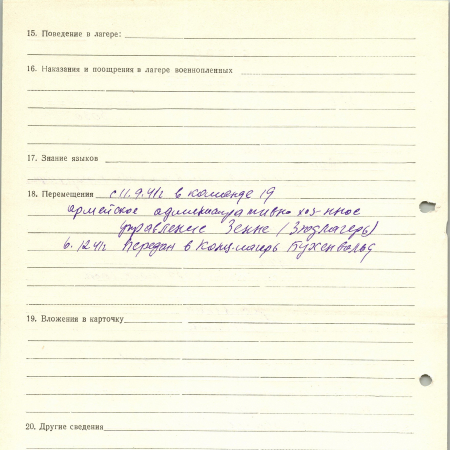 15. Поведение в лагере:
16. Наказания и поощрения в лагере военнопленных
17. Знание языков
18. Перемещения с 11.9.41г в команде 19
армейское административно хоз-нное
управление Зенне (Зюдлагерь)
6.12 41г передан в конц-лагерь Бухенвальд
19. Вложения в карточку
20. Другие сведения